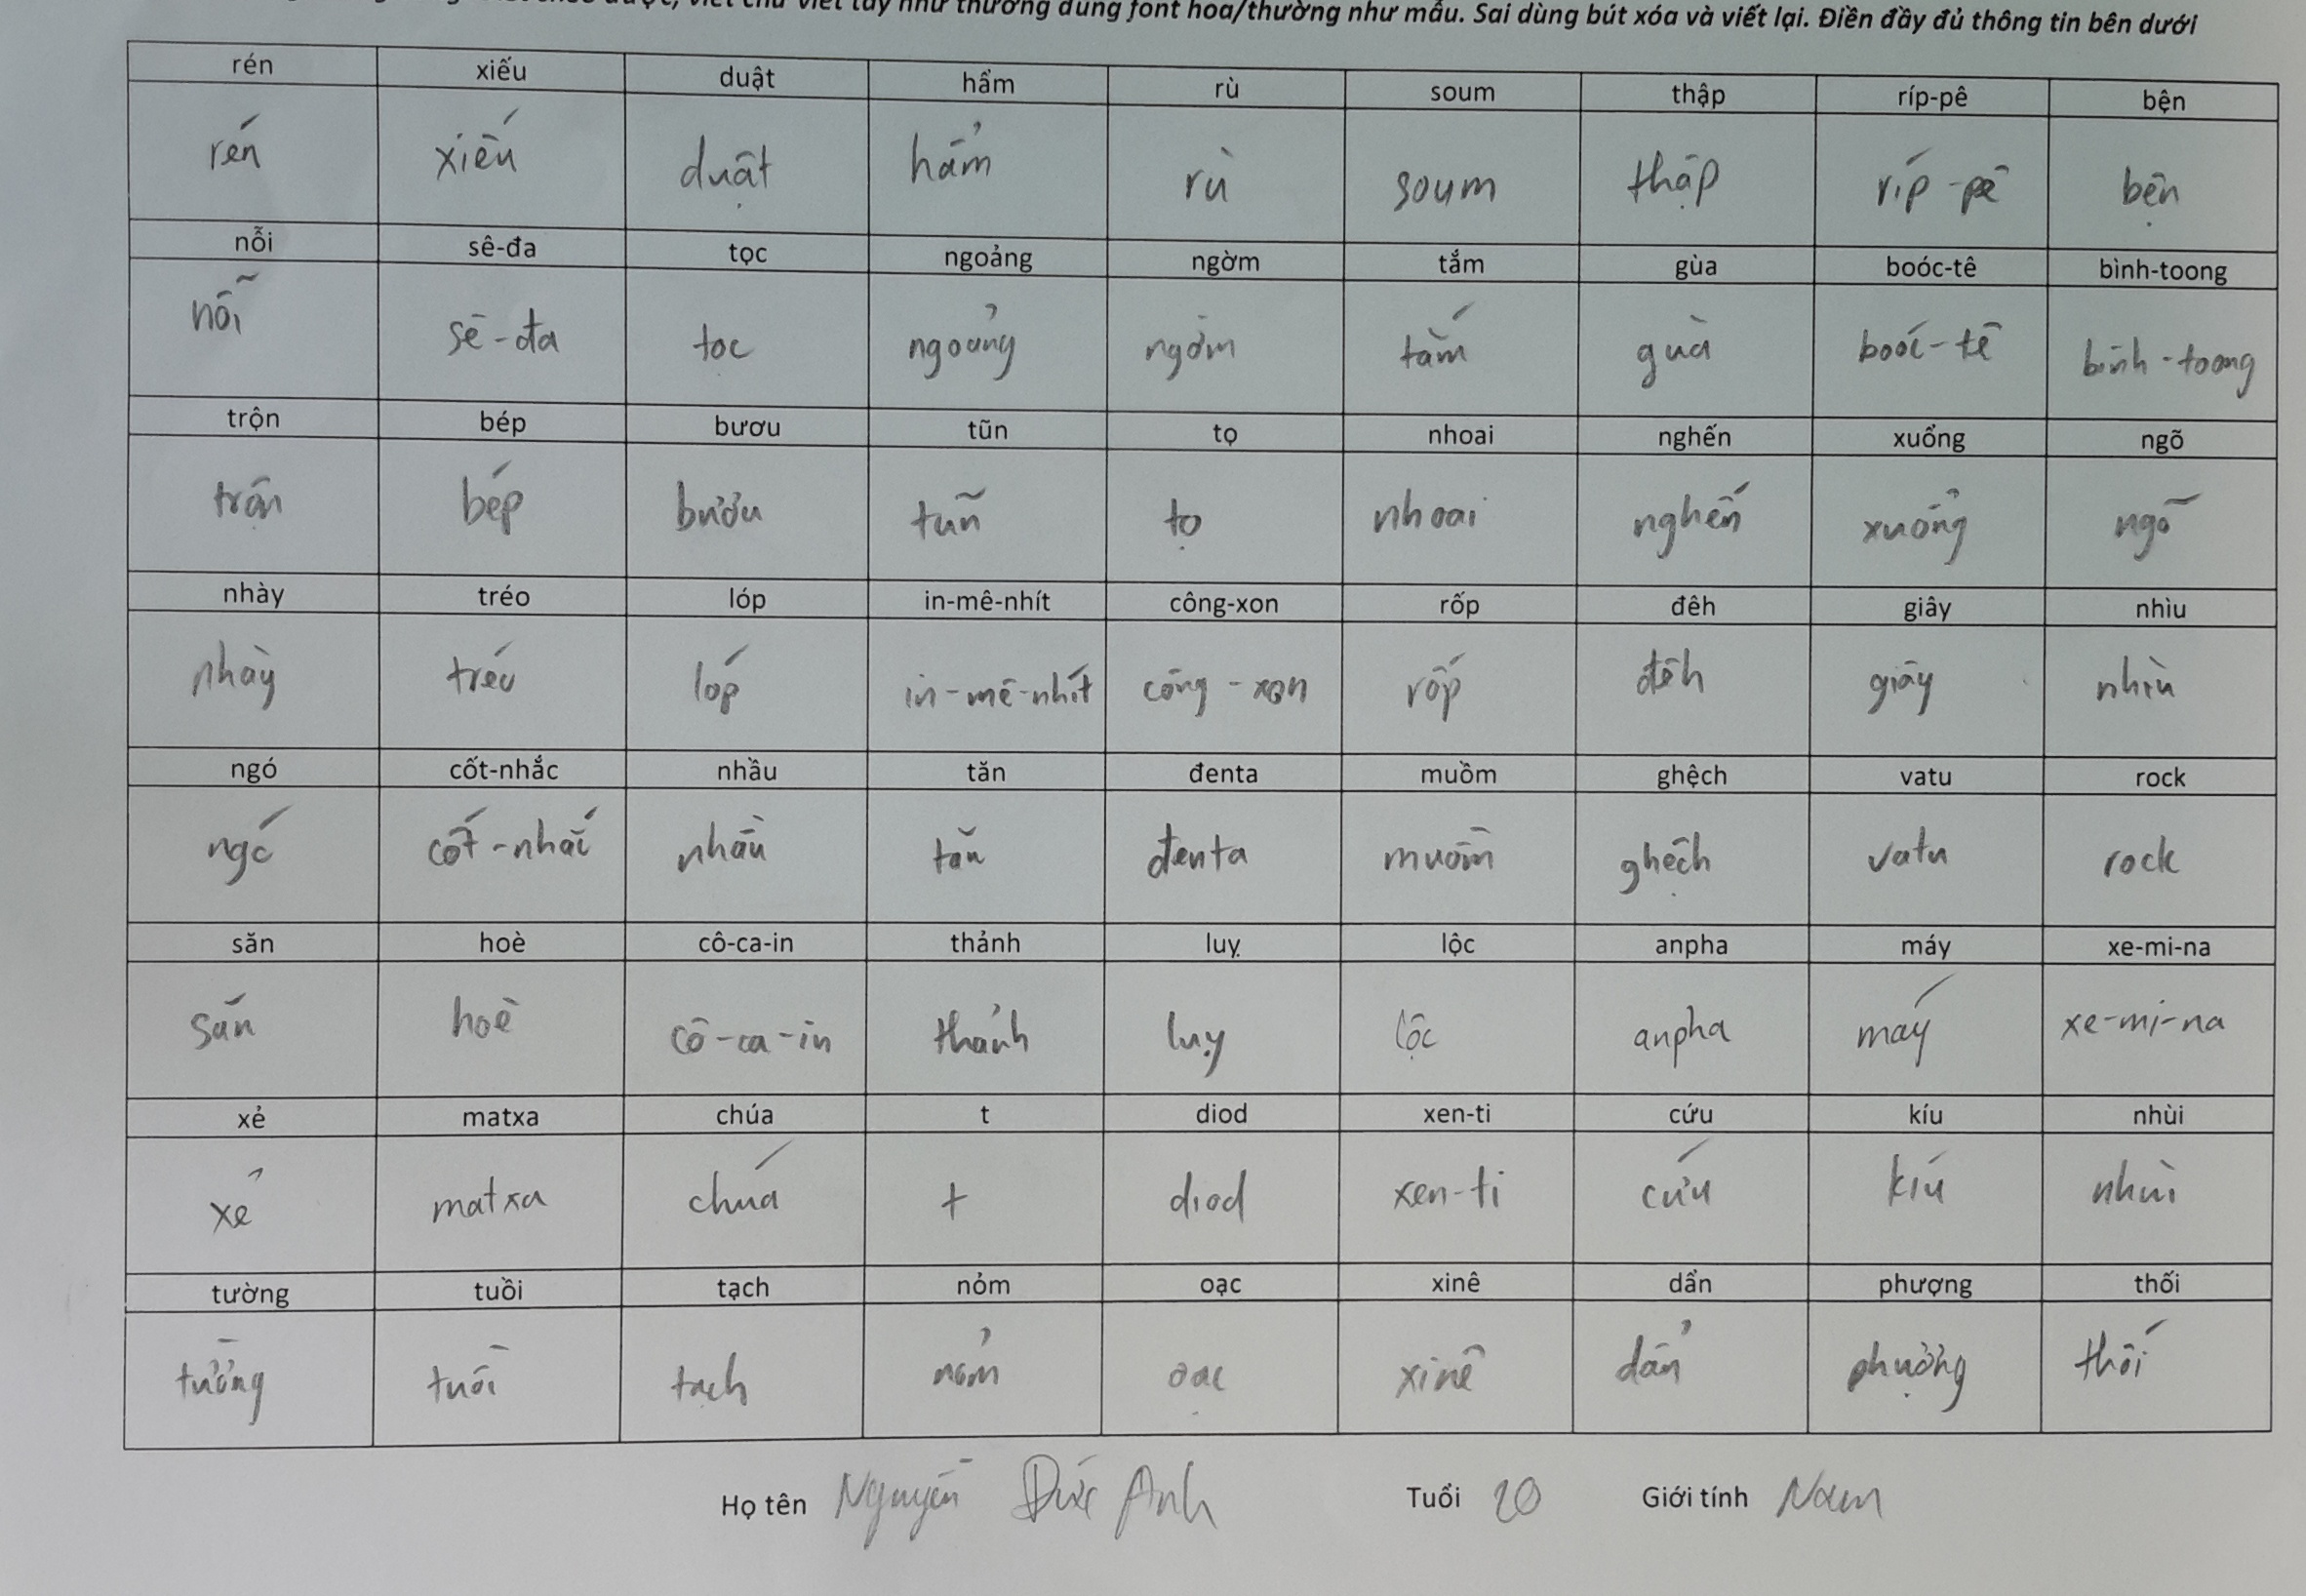 viết chữ viết tay như thường dùng font hoa/thường như mẫu. Sai dùng bút xóa và viết lại. Điền đầy đủ thông tin bên dưới
rén xiếu duật hẩm rù soum thập ríp-pê bện
rén xiếu duật hẩm rù soum thập ríp-pê bện
nỗi sê-đa tọc ngoảng ngờm tắm gùa boóc-tê bình-toong
nỗi sê-đa tọc ngoảng ngờm tắm gùa boóc-tê bình-toong
trộn bép bươu tũn tọ nhoai nghến xuổng ngõ
trộn bép bươu tũn tọ nhoai nghến xuổng ngõ
nhày tréo lóp in-mê-nhít công-xon rốp đêh giây nhìu
nhày tréo lóp in-mê-nhít công-xon rốp đêh giây nhìu
ngó cốt-nhắc nhầu tăn đenta muồm ghệch vatu rock
ngó cốt-nhắc nhầu tăn đenta muồm ghệch vatu rock
săn hoè cô-ca-in thảnh luỵ lộc anpha máy xe-mi-na
săn hoè cô-ca-in thảnh luỵ lộc anpha máy xe-mi-na
xẻ matxa chúa t diod xen-ti cứu kíu nhùi
xẻ matxa chúa t diod xen-ti cứu kíu nhùi
tường tuồi tạch nỏm oạc xinê dẩn phượng thối
tường tuồi tạch nỏm oạc xinê dẩn phượng thối
Họ tên Nguyễn Đức Anh Tuổi 20 Giới tính Nam